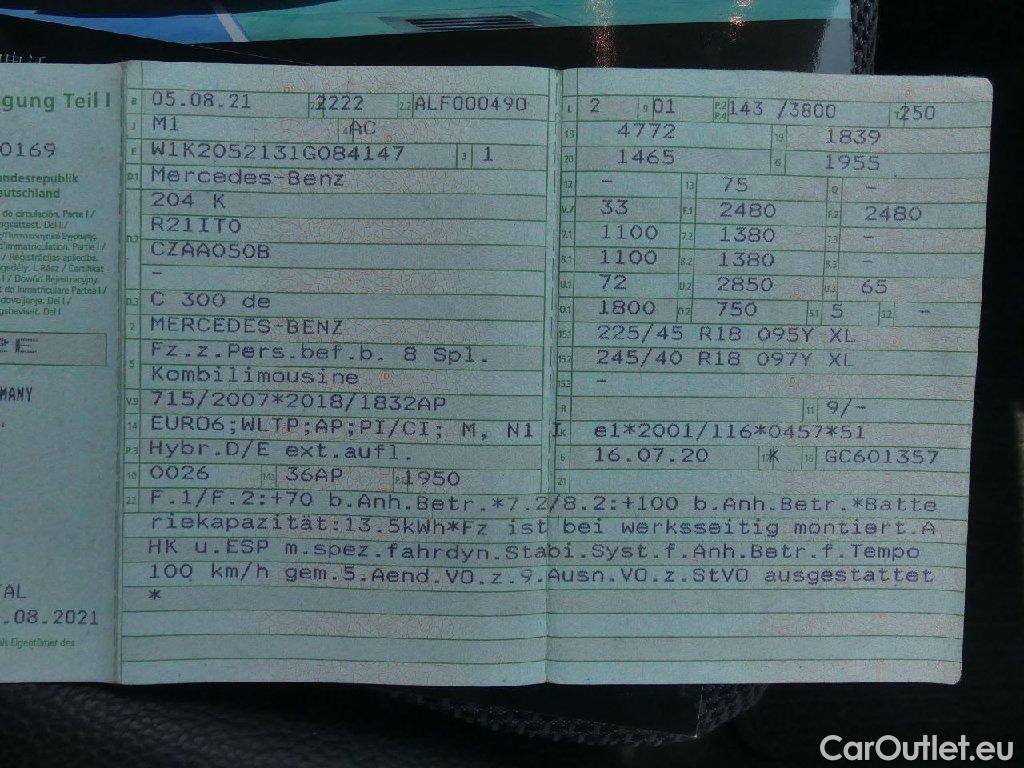 gung Teil I
0169
undesrepublik
eutschland
B 05.08.21 2.1 2222 2.2 ALF000490
J M1 4 AC
E W1K2052131G084147 3 1
D.1 Mercedes-Benz
204 K
D.2 R21ITO
CZAA050B
-
D.3 C 300 de
2 MERCEDES-BENZ
5 Fz.z.Pers.bef.b. 8 Spl.
Kombilimousine
V.9 715/2007*2018/1832AP
14 EURO6;WLTP;AP;PI/CI; M, N1 I
P.3 Hybr.D/E ext.aufl.
10 0026 14.1 36AP P.1 1950
L 2 9 01 P.2 P.4 143 /3800 T 250
18 4772 19 1839
20 1465 G 1955
12 - 13 75 Q -
V.7 33 F.1 2480 F.2 2480
7.1 1100 7.2 1380 7.3 -
8.1 1100 8.2 1380 8.3 -
U.1 72 U.2 2850 U.3 65
O.1 1800 O.2 750 S.1 5 S.2 -
15.1 225/45 R18 095Y XL
15.2 245/40 R18 097Y XL
15.3 -
R 11 9/-
K e1*2001/116*0457*51
6 16.07.20 17 K 16 GC601357
21
22 F.1/F.2:+70 b.Anh.Betr.*7.2/8.2:+100 b.Anh.Betr.*Batte
riekapazität:13.5kWh*Fz ist bei werksseitig montiert.A
HK u.ESP m.spez.fahrdyn.Stabi.Syst.f.Anh.Betr.f.Tempo
100 km/h gem.5.Aend.VO.z.9.Ausn.VO.z.StVO ausgestattet
*
MANY
TAL
.08.2021
als Eigentümer des
CarOutlet.eu